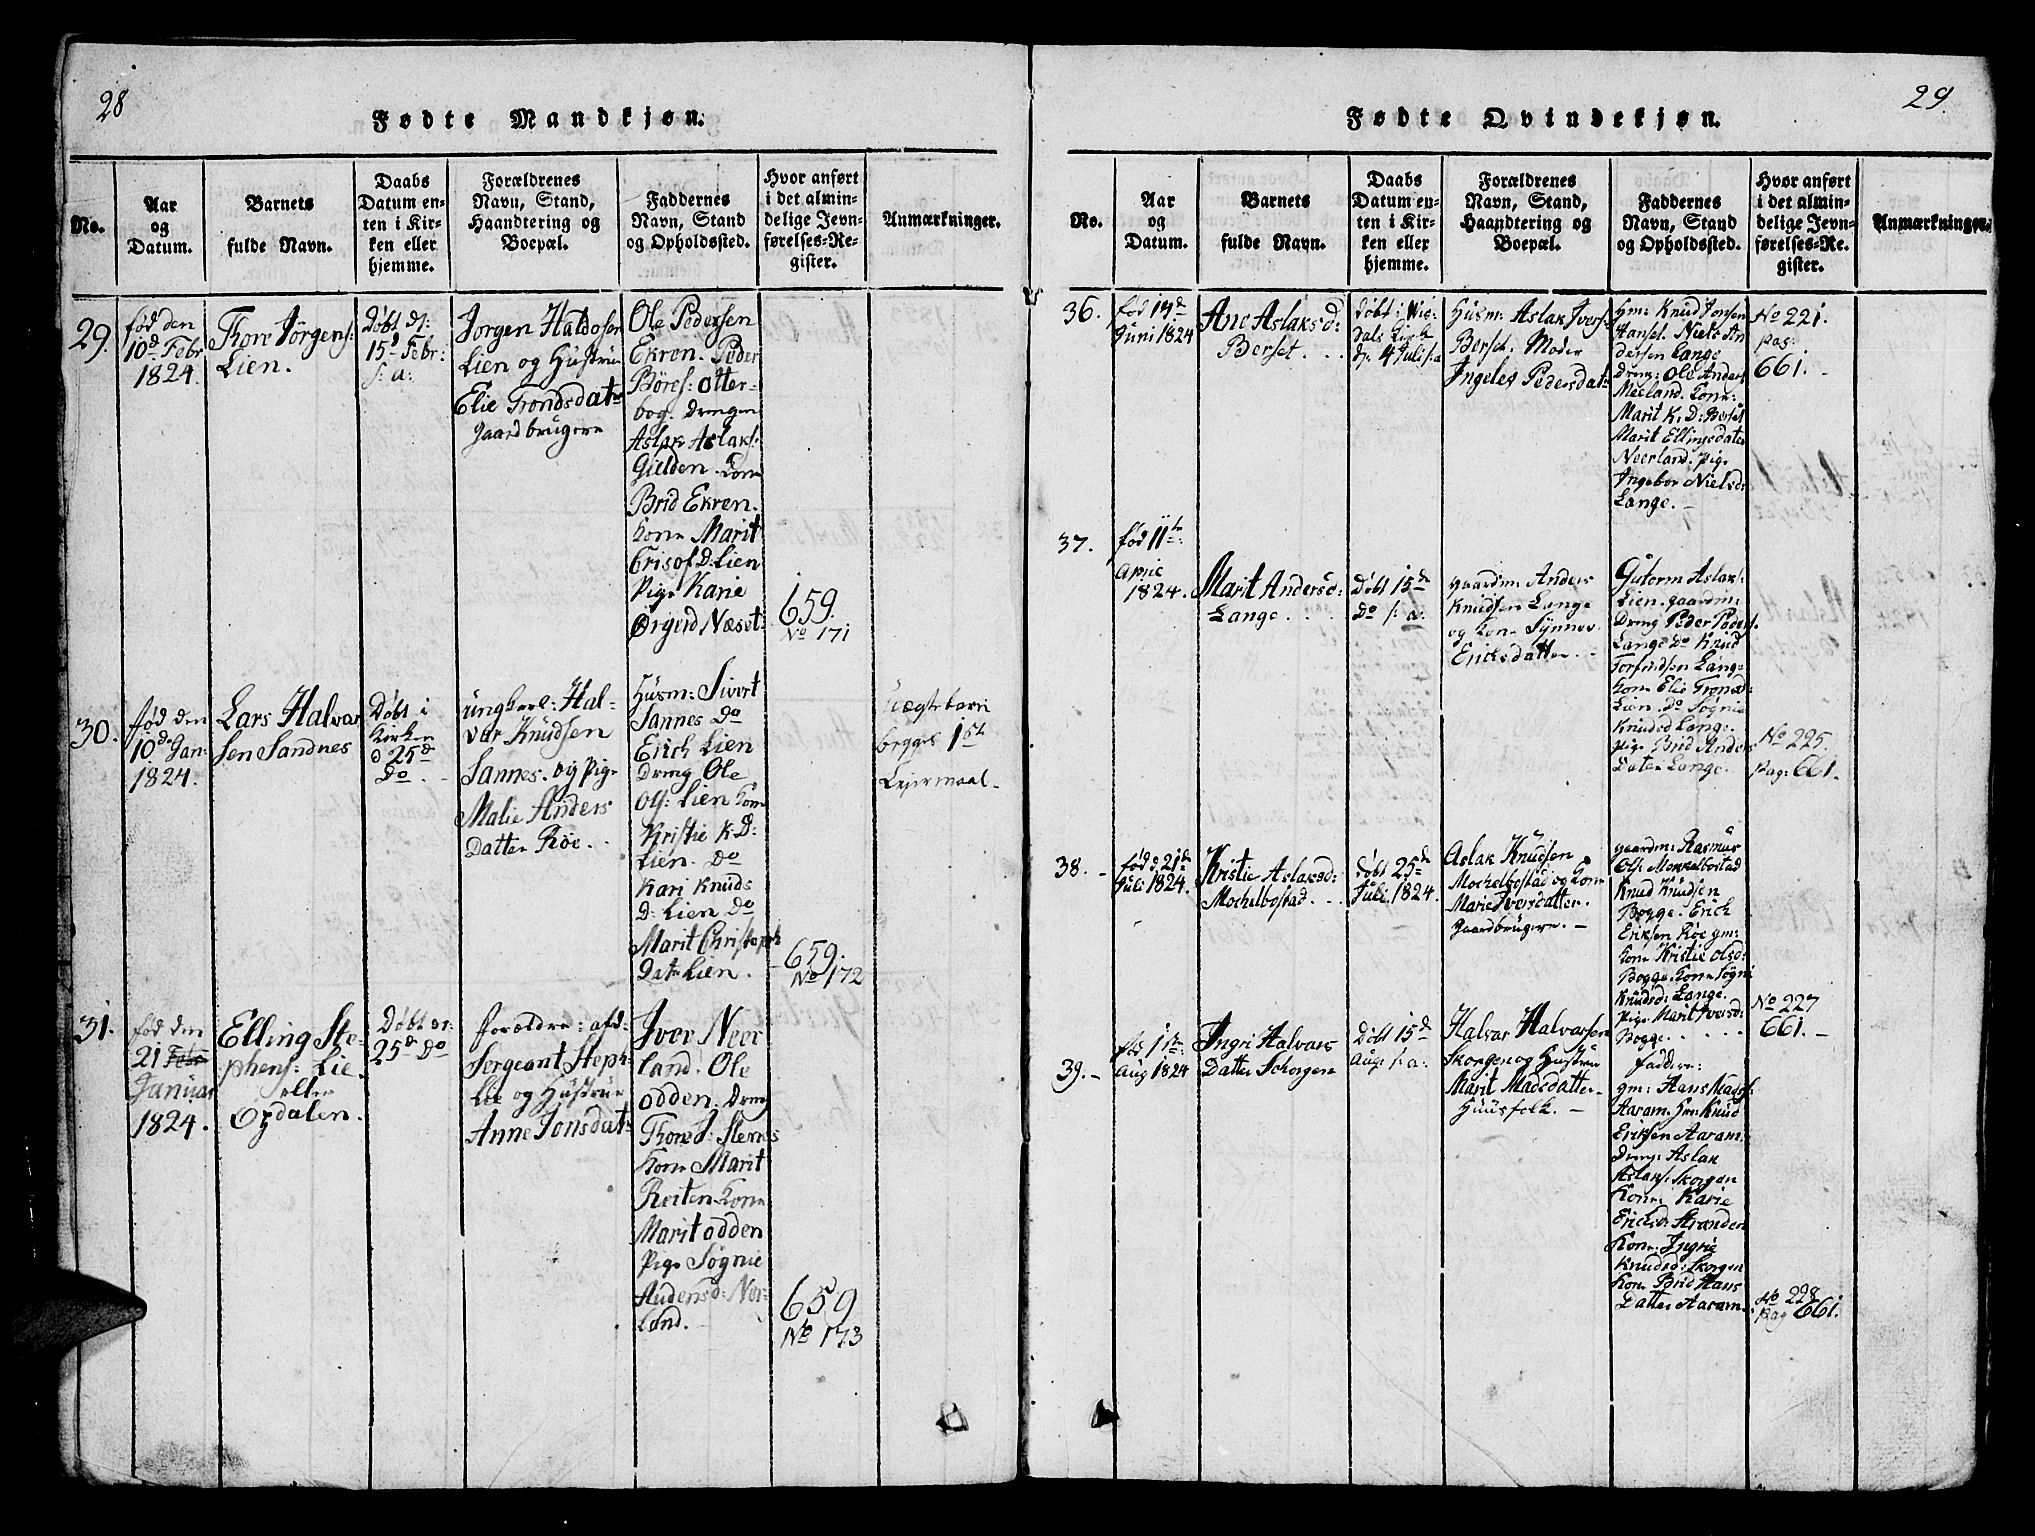 28
Fødte Mandkjøn.
No.
Aar
og
Datum.
Barnets
fulde Navn.
Daabs
Datum en-
ten i Kir-
ken eller
hjemme.
Forældrenes
Navn, Stand,
Haandtering og
Boepæl.
Faddernes
Navn, Stand
og Opholdssted.
Hvor anført
i det almin-
delige Jevn-
førelses-Re-
gister.
Anmærkninger.
29.
fød den
10d Febr
1824.
Thore Jörgens:
Lien.
Döbt d:
15d Febr:
s: a:
Jorgen Haldosen
Lien og Hustrue
Elie Trondsdatr
gaardbrugere
Ole Pedersen
Ekren. Peder
Böres: Otter-
bog. Drengen
Aslak Aslaks:
Gielden. Kone
Brid Ekren.
Kone Marit
Crisof D: Lien
Pige Karie
Örgerd Næset:
659.
No 171
30.
fød den
10de Jan:
1824.
Lars Halvar
sen Sandnes
Döbt i
Kirken
d 25d
Do.
ungkarl: Hal-
var Knudsen
Sannes. og Pige
Malie Anders
Datter Röe.
Husm: Sivert
Sannes Do
Erich Lien
Dreng Ole
Ols: Lien Kone
Kristie K: D:
Lien. Do
Kari Knuds
D: Lien Do
Marit Christoph
Datr Lien.
659.
No 172
Uægte barn
begges 1st
Leiermaal.
31.
fød den
21 Febr
Januar
1824.
Elling Ste-
phens: Lie
eller
Opdalen.
Döbt d:
25d Do
foreldre: afd:
Sergeant Steph:
Lie og Hustrue
Anne Jonsdatr
Iver Neer
land. Ole
Odden. Dreng
Thore J: Sternes
Kone Marit
Reiten Kone
Marit Odden
Pige Sögnie
Audensd: Ner-
land.
659
No 173
29
Fødte Qvindekjøn.
No.
Aar
og
Datum.
Barnets
fulde Navn.
Daabs
Datum en-
ten i Kir-
ken eller
hjemme.
Forældrenes
Navn, Stand,
Haandtering og
Boepæl.
Faddernes
Navn, Stand
og Opholdssted.
Hvor anført
i det almin-
delige Jevn-
førelses-Re-
gister.
Anmærkninger.
36.
fød 14d
Juni 1824
Ane Aslaksd:
Berset.
döbt: Vig-
dals Kirke
d: 4 Juli s: a
Husm: Aslak Ivers:
Berset. Moder
Ingeles Pedersdatr
gm: Knud Jonsen
Hanset. Niels An
dersen Lange
Dreng: Ole Anders
Meeland. Kone:
Marit K: D: Berset
Marit Ellingsdater
Neerland. Pige
Ingebor Nielsd:
Lange.
No 221.
pag:
661.
37.
fød 11te
Aprie
1824.
Marit Andersd:
Lange.
Döbt 15de
Do s: a:
gaardm: Anders
Knudsen Lange
og Kone Synnev
Ericksdatter.
Gutorm Aslaks:
Lien. gaardm:
Dreng Peder Peders.
Lange Do Knud
Torfindsen Lange
Kone Elie Tronsd:
Lien. Do Sögnie
Knudsd Lange.
Pige Brid Anders
Datter Lange.
No 225.
Pag: 661.
38.
fød d. 21de
Juli 1824.
Kristie Aslaksd:
Mochelbostad.
döbt 25de
Juli. 1824.
Aslak Knudsen
Mochelbostad og Kone
Marie Iversdatter.
Gaardbrugere.
gaardm: Rasmus
Ols: Mokkelbostad
Knud Knudsen
Bogge. Erich
Eriksen Röe gm:
Kone Kristie Olsd:
Bogge. Kone Sögni
Knudsd: Lange.
Pige Marit Iversd:
Bogge.
No 227
661.
39.
fød 1ste
Aug 1824
Ingri Halvars
Datter Schorgen
Döbt 15de
Aug: s: a:
Halvar Halvarsen
Skorgen og Hustrue
Marit Madsdatter
Huusfolk.
faddere:
gm: Hans Mads:
Aaram. gm: Knud
Eriksen Aaram.
Dreng: Aslak
Aslaks: Skorgen
Kone: Karie
Ericksd: Stranden
Kone: Ingrie
Knudsd: Skorgen
Kone Brid Hans
Datter Aaram.
No 228
Pag 661.